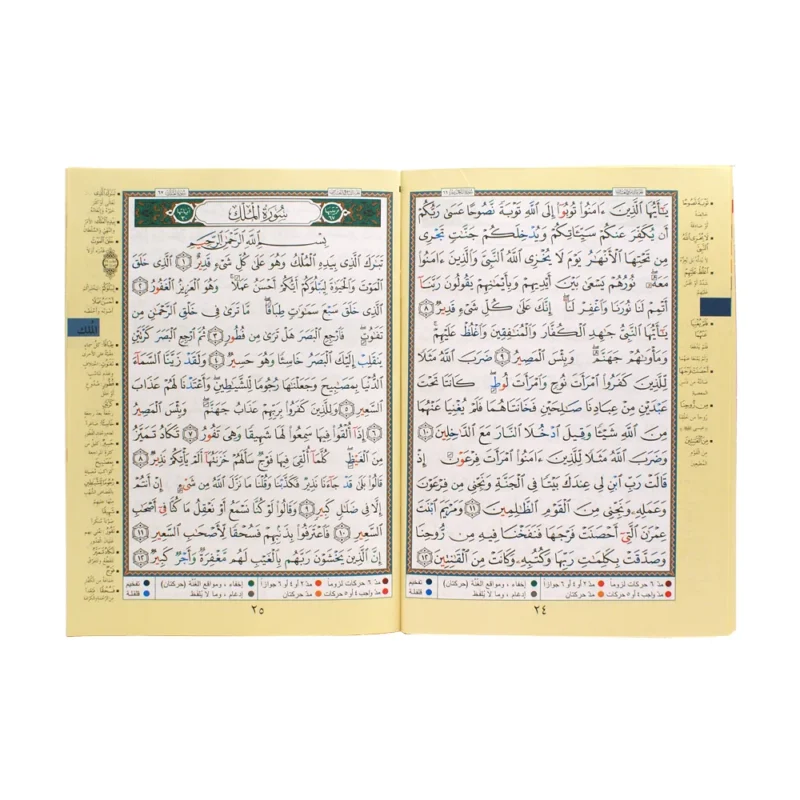 يَٰٓأَيُّهَا ٱلَّذِينَ ءَامَنُوا۟ تُوبُوٓا۟ إِلَى ٱللَّهِ تَوْبَةً نَّصُوحًا عَسَىٰ رَبُّكُمْ
أَن يُكَفِّرَ عَنكُمْ سَيِّـَٔاتِكُمْ وَيُدْخِلَكُمْ جَنَّٰتٍ تَجْرِى
مِن تَحْتِهَا ٱلْأَنْهَٰرُ يَوْمَ لَا يُخْزِى ٱللَّهُ ٱلنَّبِىَّ وَٱلَّذِينَ ءَامَنُوا۟
مَعَهُۥ ۖ نُورُهُمْ يَسْعَىٰ بَيْنَ أَيْدِيهِمْ وَبِأَيْمَٰنِهِمْ يَقُولُونَ رَبَّنَآ
أَتْمِمْ لَنَا نُورَنَا وَٱغْفِرْ لَنَآ ۖ إِنَّكَ عَلَىٰ كُلِّ شَىْءٍ قَدِيرٌ ٨
يَٰٓأَيُّهَا ٱلنَّبِىُّ جَٰهِدِ ٱلْكُفَّارَ وَٱلْمُنَٰفِقِينَ وَٱغْلُظْ عَلَيْهِمْ ۚ
وَمَأْوَىٰهُمْ جَهَنَّمُ ۖ وَبِئْسَ ٱلْمَصِيرُ ٩ ضَرَبَ ٱللَّهُ مَثَلًا
لِّلَّذِينَ كَفَرُوا۟ ٱمْرَأَتَ نُوحٍ وَٱمْرَأَتَ لُوطٍ ۖ كَانَتَا تَحْتَ
عَبْدَيْنِ مِنْ عِبَادِنَا صَٰلِحَيْنِ فَخَانَتَاهُمَا فَلَمْ يُغْنِيَا عَنْهُمَا
مِنَ ٱللَّهِ شَيْـًٔا وَقِيلَ ٱدْخُلَا ٱلنَّارَ مَعَ ٱلدَّٰخِلِينَ ١٠
وَضَرَبَ ٱللَّهُ مَثَلًا لِّلَّذِينَ ءَامَنُوا۟ ٱمْرَأَتَ فِرْعَوْنَ إِذْ
قَالَتْ رَبِّ ٱبْنِ لِى عِندَكَ بَيْتًا فِى ٱلْجَنَّةِ وَنَجِّنِى مِن فِرْعَوْنَ
وَعَمَلِهِۦ وَنَجِّنِى مِنَ ٱلْقَوْمِ ٱلظَّٰلِمِينَ ١١ وَمَرْيَمَ ٱبْنَتَ
عِمْرَٰنَ ٱلَّتِىٓ أَحْصَنَتْ فَرْجَهَا فَنَفَخْنَا فِيهِ مِن رُّوحِنَا
وَصَدَّقَتْ بِكَلِمَٰتِ رَبِّهَا وَكُتُبِهِۦ وَكَانَتْ مِنَ ٱلْقَٰنِتِينَ ١٢
مدّ ٦ حركات لزوماً مدّ ٢ أو ٤ أو ٦ جوازاً إخفاء، ومواقع الغنّة (حركتان) تفخيم
مدّ واجب ٤ أو ٥ حركات مدّ حركتان إدغام، وما لا يُلفظ قلقلة
٢٤
سُورَةُ المُلْكِ
بِسْمِ ٱللَّهِ ٱلرَّحْمَٰنِ ٱلرَّحِيمِ
تَبَٰرَكَ ٱلَّذِى بِيَدِهِ ٱلْمُلْكُ وَهُوَ عَلَىٰ كُلِّ شَىْءٍ قَدِيرٌ ١ ٱلَّذِى خَلَقَ
ٱلْمَوْتَ وَٱلْحَيَوٰةَ لِيَبْلُوَكُمْ أَيُّكُمْ أَحْسَنُ عَمَلًا ۚ وَهُوَ ٱلْعَزِيزُ ٱلْغَفُورُ ٢
ٱلَّذِى خَلَقَ سَبْعَ سَمَٰوَٰتٍ طِبَاقًا ۖ مَّا تَرَىٰ فِى خَلْقِ ٱلرَّحْمَٰنِ مِن
تَفَٰوُتٍ ۖ فَٱرْجِعِ ٱلْبَصَرَ هَلْ تَرَىٰ مِن فُطُورٍ ٣ ثُمَّ ٱرْجِعِ ٱلْبَصَرَ كَرَّتَيْنِ
يَنقَلِبْ إِلَيْكَ ٱلْبَصَرُ خَاسِئًا وَهُوَ حَسِيرٌ ٤ وَلَقَدْ زَيَّنَّا ٱلسَّمَآءَ
ٱلدُّنْيَا بِمَصَٰبِيحَ وَجَعَلْنَٰهَا رُجُومًا لِّلشَّيَٰطِينِ ۖ وَأَعْتَدْنَا لَهُمْ عَذَابَ
ٱلسَّعِيرِ ٥ وَلِلَّذِينَ كَفَرُوا۟ بِرَبِّهِمْ عَذَابُ جَهَنَّمَ ۖ وَبِئْسَ ٱلْمَصِيرُ
٦ إِذَآ أُلْقُوا۟ فِيهَا سَمِعُوا۟ لَهَا شَهِيقًا وَهِىَ تَفُورُ ٧ تَكَادُ تَمَيَّزُ
مِنَ ٱلْغَيْظِ ۖ كُلَّمَآ أُلْقِىَ فِيهَا فَوْجٌ سَأَلَهُمْ خَزَنَتُهَآ أَلَمْ يَأْتِكُمْ نَذِيرٌ ٨
قَالُوا۟ بَلَىٰ قَدْ جَآءَنَا نَذِيرٌ فَكَذَّبْنَا وَقُلْنَا مَا نَزَّلَ ٱللَّهُ مِن شَىْءٍ إِنْ أَنتُمْ
إِلَّا فِى ضَلَٰلٍ كَبِيرٍ ٩ وَقَالُوا۟ لَوْ كُنَّا نَسْمَعُ أَوْ نَعْقِلُ مَا كُنَّا فِىٓ أَصْحَٰبِ
ٱلسَّعِيرِ ١٠ فَٱعْتَرَفُوا۟ بِذَنۢبِهِمْ فَسُحْقًا لِّأَصْحَٰبِ ٱلسَّعِيرِ ١١
إِنَّ ٱلَّذِينَ يَخْشَوْنَ رَبَّهُم بِٱلْغَيْبِ لَهُم مَّغْفِرَةٌ وَأَجْرٌ كَبِيرٌ ١٢
مدّ ٦ حركات لزوماً مدّ ٢ أو ٤ أو ٦ جوازاً إخفاء، ومواقع الغنّة (حركتان) تفخيم
مدّ واجب ٤ أو ٥ حركات مدّ حركتان إدغام، وما لا يُلفظ قلقلة
٢٥
المُلك